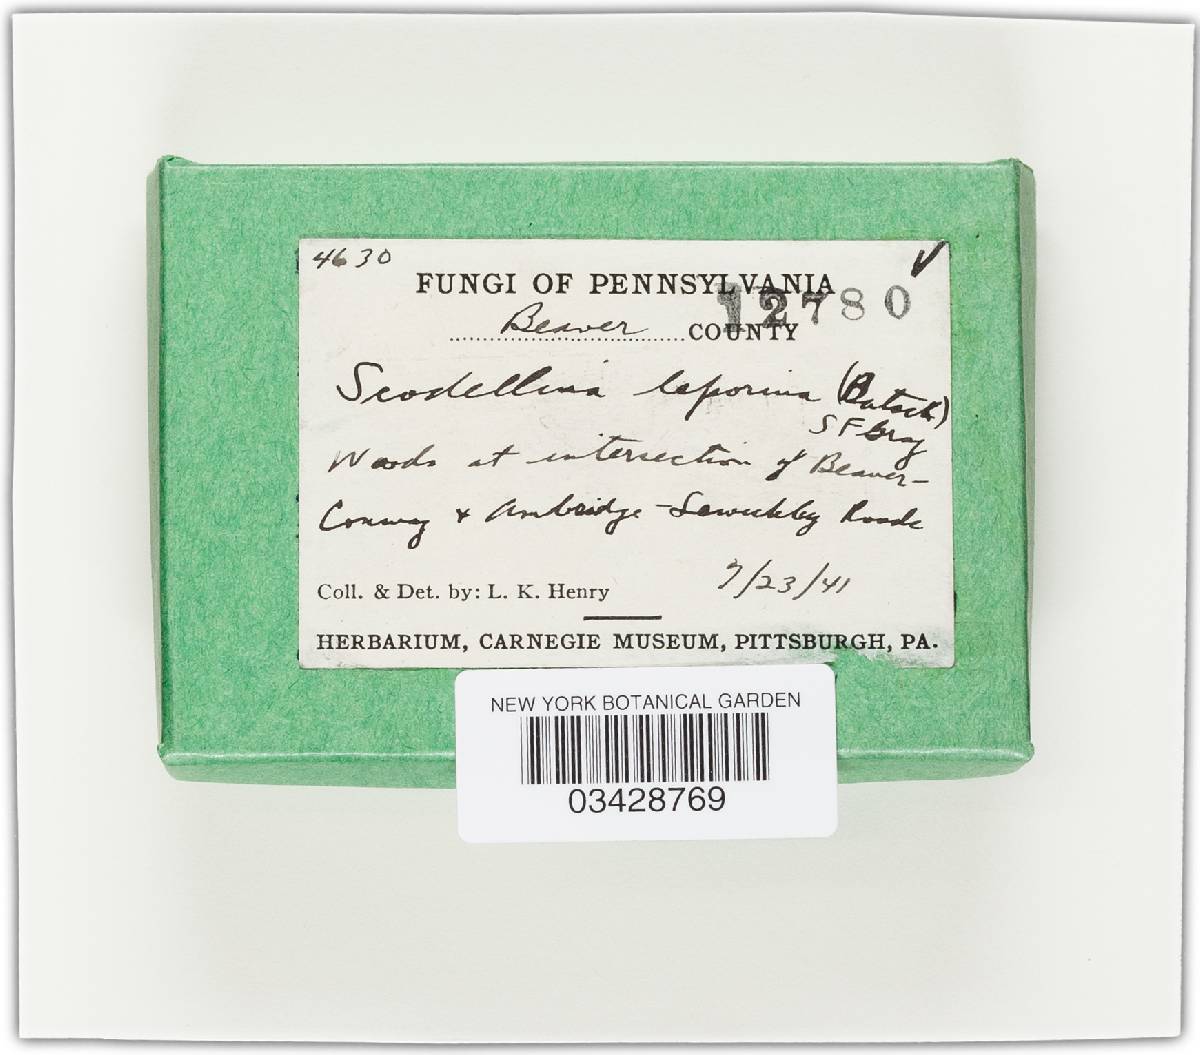 4630
FUNGI OF PENNSYLVANIA
12780
Beaver COUNTY
Scodellina leporina (Batsch)
S F Gray
Woods at intersection of Beaver-
Conway & Ambridge-Sewickley Roads
Coll. & Det. by: L. K. Henry 7/23/41
HERBARIUM, CARNEGIE MUSEUM, PITTSBURGH, PA.
NEW YORK BOTANICAL GARDEN
03428769